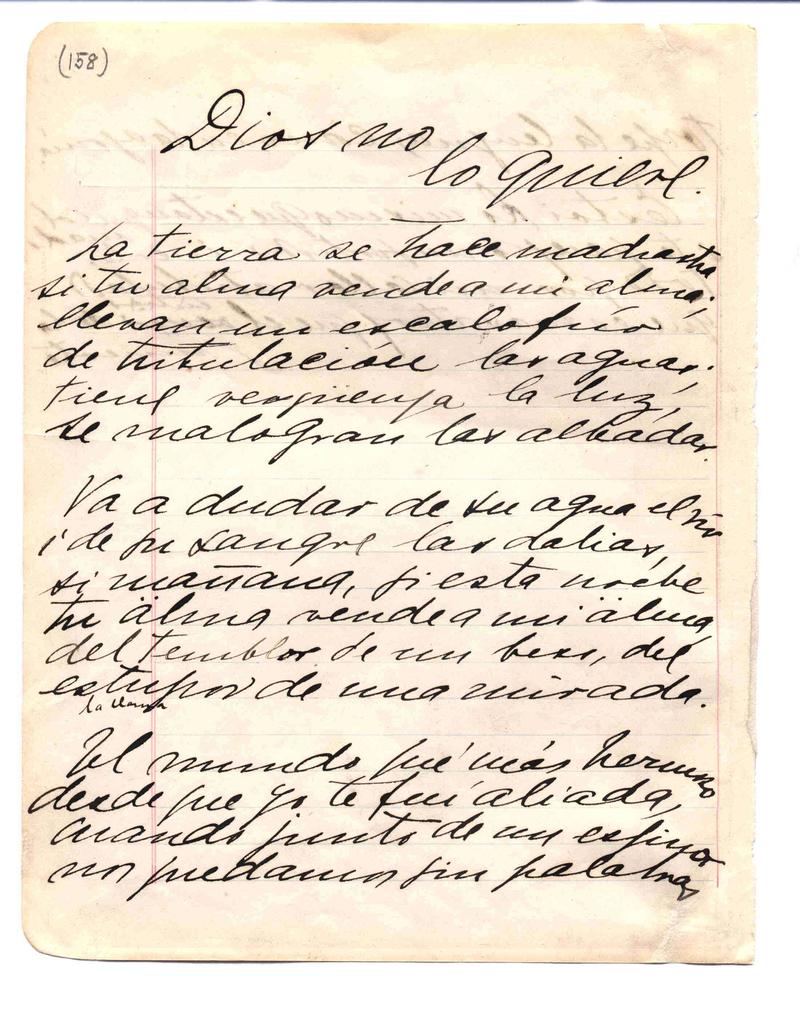 (158)
Dios no
lo quiere.
La tierra se hace madrastra
si tu alma vende a mi alma;
llevan un escalofrío
de tribulación las aguas;
tiene vergüenza la luz,
se malogran las albadas.
Va a dudar de su agua el río
i de su sangre las dalias,
si mañana, si esta noche
tu alma vende a mi alma,
del temblor de un beso, del
estupor de una mirada.
la llama
El mundo fué más hermoso
desde que yo te fuí aliada,
cuando junto de un espino
nos quedamos sin palabras